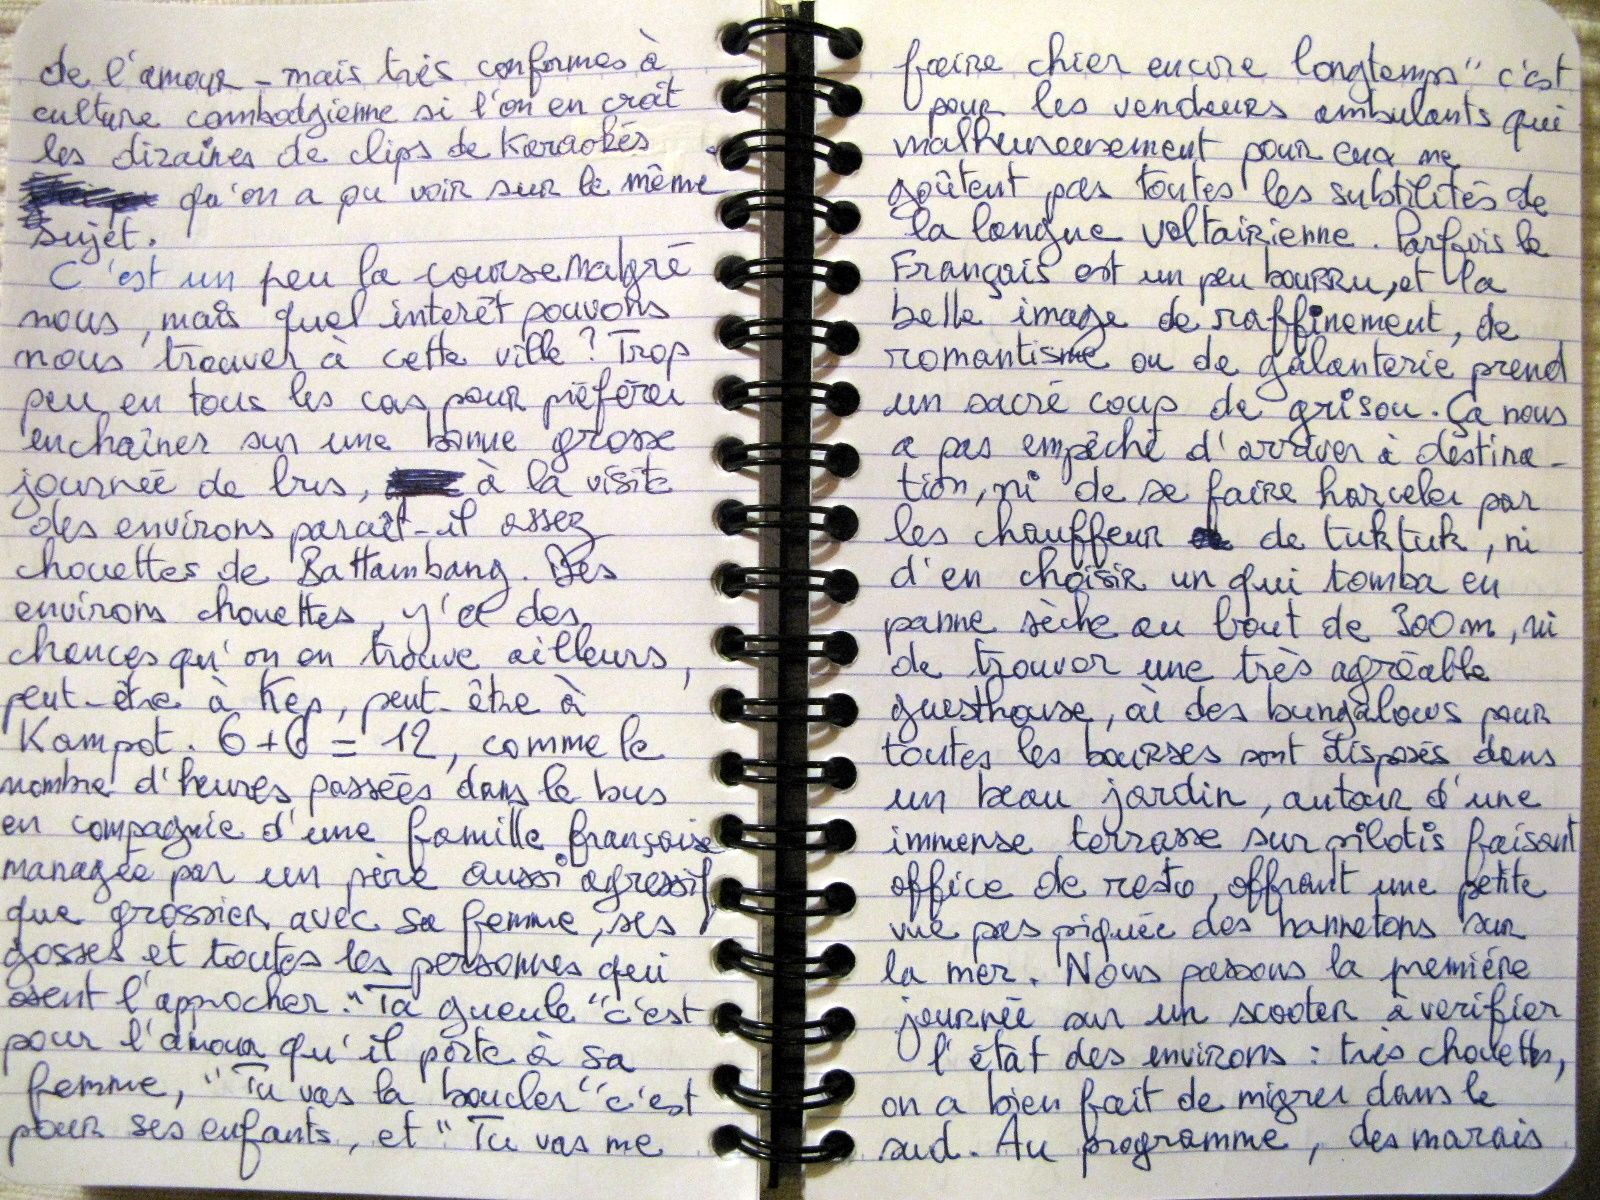 de l'amour - mais très conformes à
culture cambodgienne si l'on en croît
les dizaines de clips de Karaokés
qu'on a pu voir sur le même
sujet.
C'est un peu la course malgré
nous, mais quel interêt pouvons
nous trouver à cette ville ? Trop
peu en tous les cas pour préférer
enchaîner sur une bonne grosse
journée de bus, à la visite
des environs paraît-il assez
chouettes de Battambang. Des
environs chouettes, y'a des
chances qu'on en trouve ailleurs,
peut-être à Kep, peut-être à
Kampot. 6+6 = 12, comme le
nombre d'heures passées dans le bus
en compagnie d'une famille française
managée par un père aussi agressif
que grossier avec sa femme, ses
gosses et toutes les personnes qui
osent l'approcher. "Ta gueule" c'est
pour l'amour qu'il porte à sa
femme, "Tu vas la boucler" c'est
pour ses enfants, et "Tu vas me
faire chier encore longtemps" c'est
pour les vendeurs ambulants qui
malheureusement pour eux ne
goûtent pas toutes les subtilités de
la langue voltairienne. Parfois le
Français est un peu bourru, et la
belle image de raffinement, de
romantisme ou de galanterie prend
un sacré coup de grisou. Ça nous
a pas empêché d'arriver à destina-
tion, ni de se faire harceler par
les chauffeur de tuktuk, ni
d'en choisir un qui tomba en
panne sèche au bout de 300m, ni
de trouver une très agréable
guesthouse, où des bungalows pour
toutes les bourses sont disposés dans
un beau jardin, autour d'une
immense terrasse sur pilotis faisant
office de resto, offrant une petite
vue pas piquée des hannetons sur
la mer. Nous passons la première
journée sur un scooter à verifier
l'état des environs : très chouettes,
on a bien fait de migrer dans le
sud. Au programme, des marais